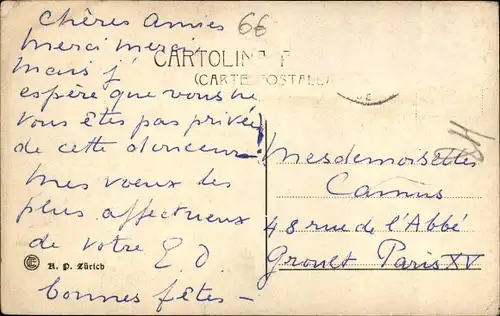 Chères Amies 66
Merci merci
CARTOLINA P
(CARTE POSTALE)
Mais j'
espère que vous ne
vous êtes pas privées
de cette douceur !
Mes voeux les
plus affectueux
de votre E. D.
bonnes fêtes —
Mesdemoiselles
Camus
48 rue de l'Abbé
Groult Paris XV
R. P. Zürich